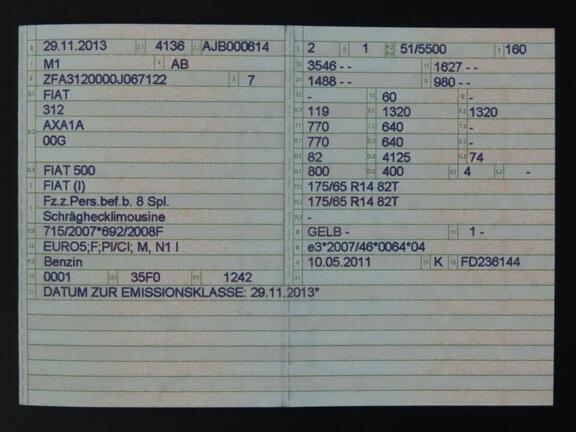 29.11.2013 4136 AJB000614
M1 AB
ZFA3120000J067122 7
FIAT
312
AXA1A
00G
FIAT 500
FIAT (I)
Fz.z.Pers.bef.b. 8 Spl.
Schräghecklimousine
715/2007*692/2008F
EURO5;F;PI/CI; M, N1 I
Benzin
0001 35F0 1242
DATUM ZUR EMISSIONSKLASSE: 29.11.2013*
2 1 51/5500 160
3546 - - 1627 - -
1488 - - 980 - -
- 60 -
119 1320 1320
770 640 -
770 640 -
82 4125 74
800 400 4 -
175/65 R14 82T
175/65 R14 82T
-
GELB - 1 -
e3*2007/46*0064*04
10.05.2011 K FD236144